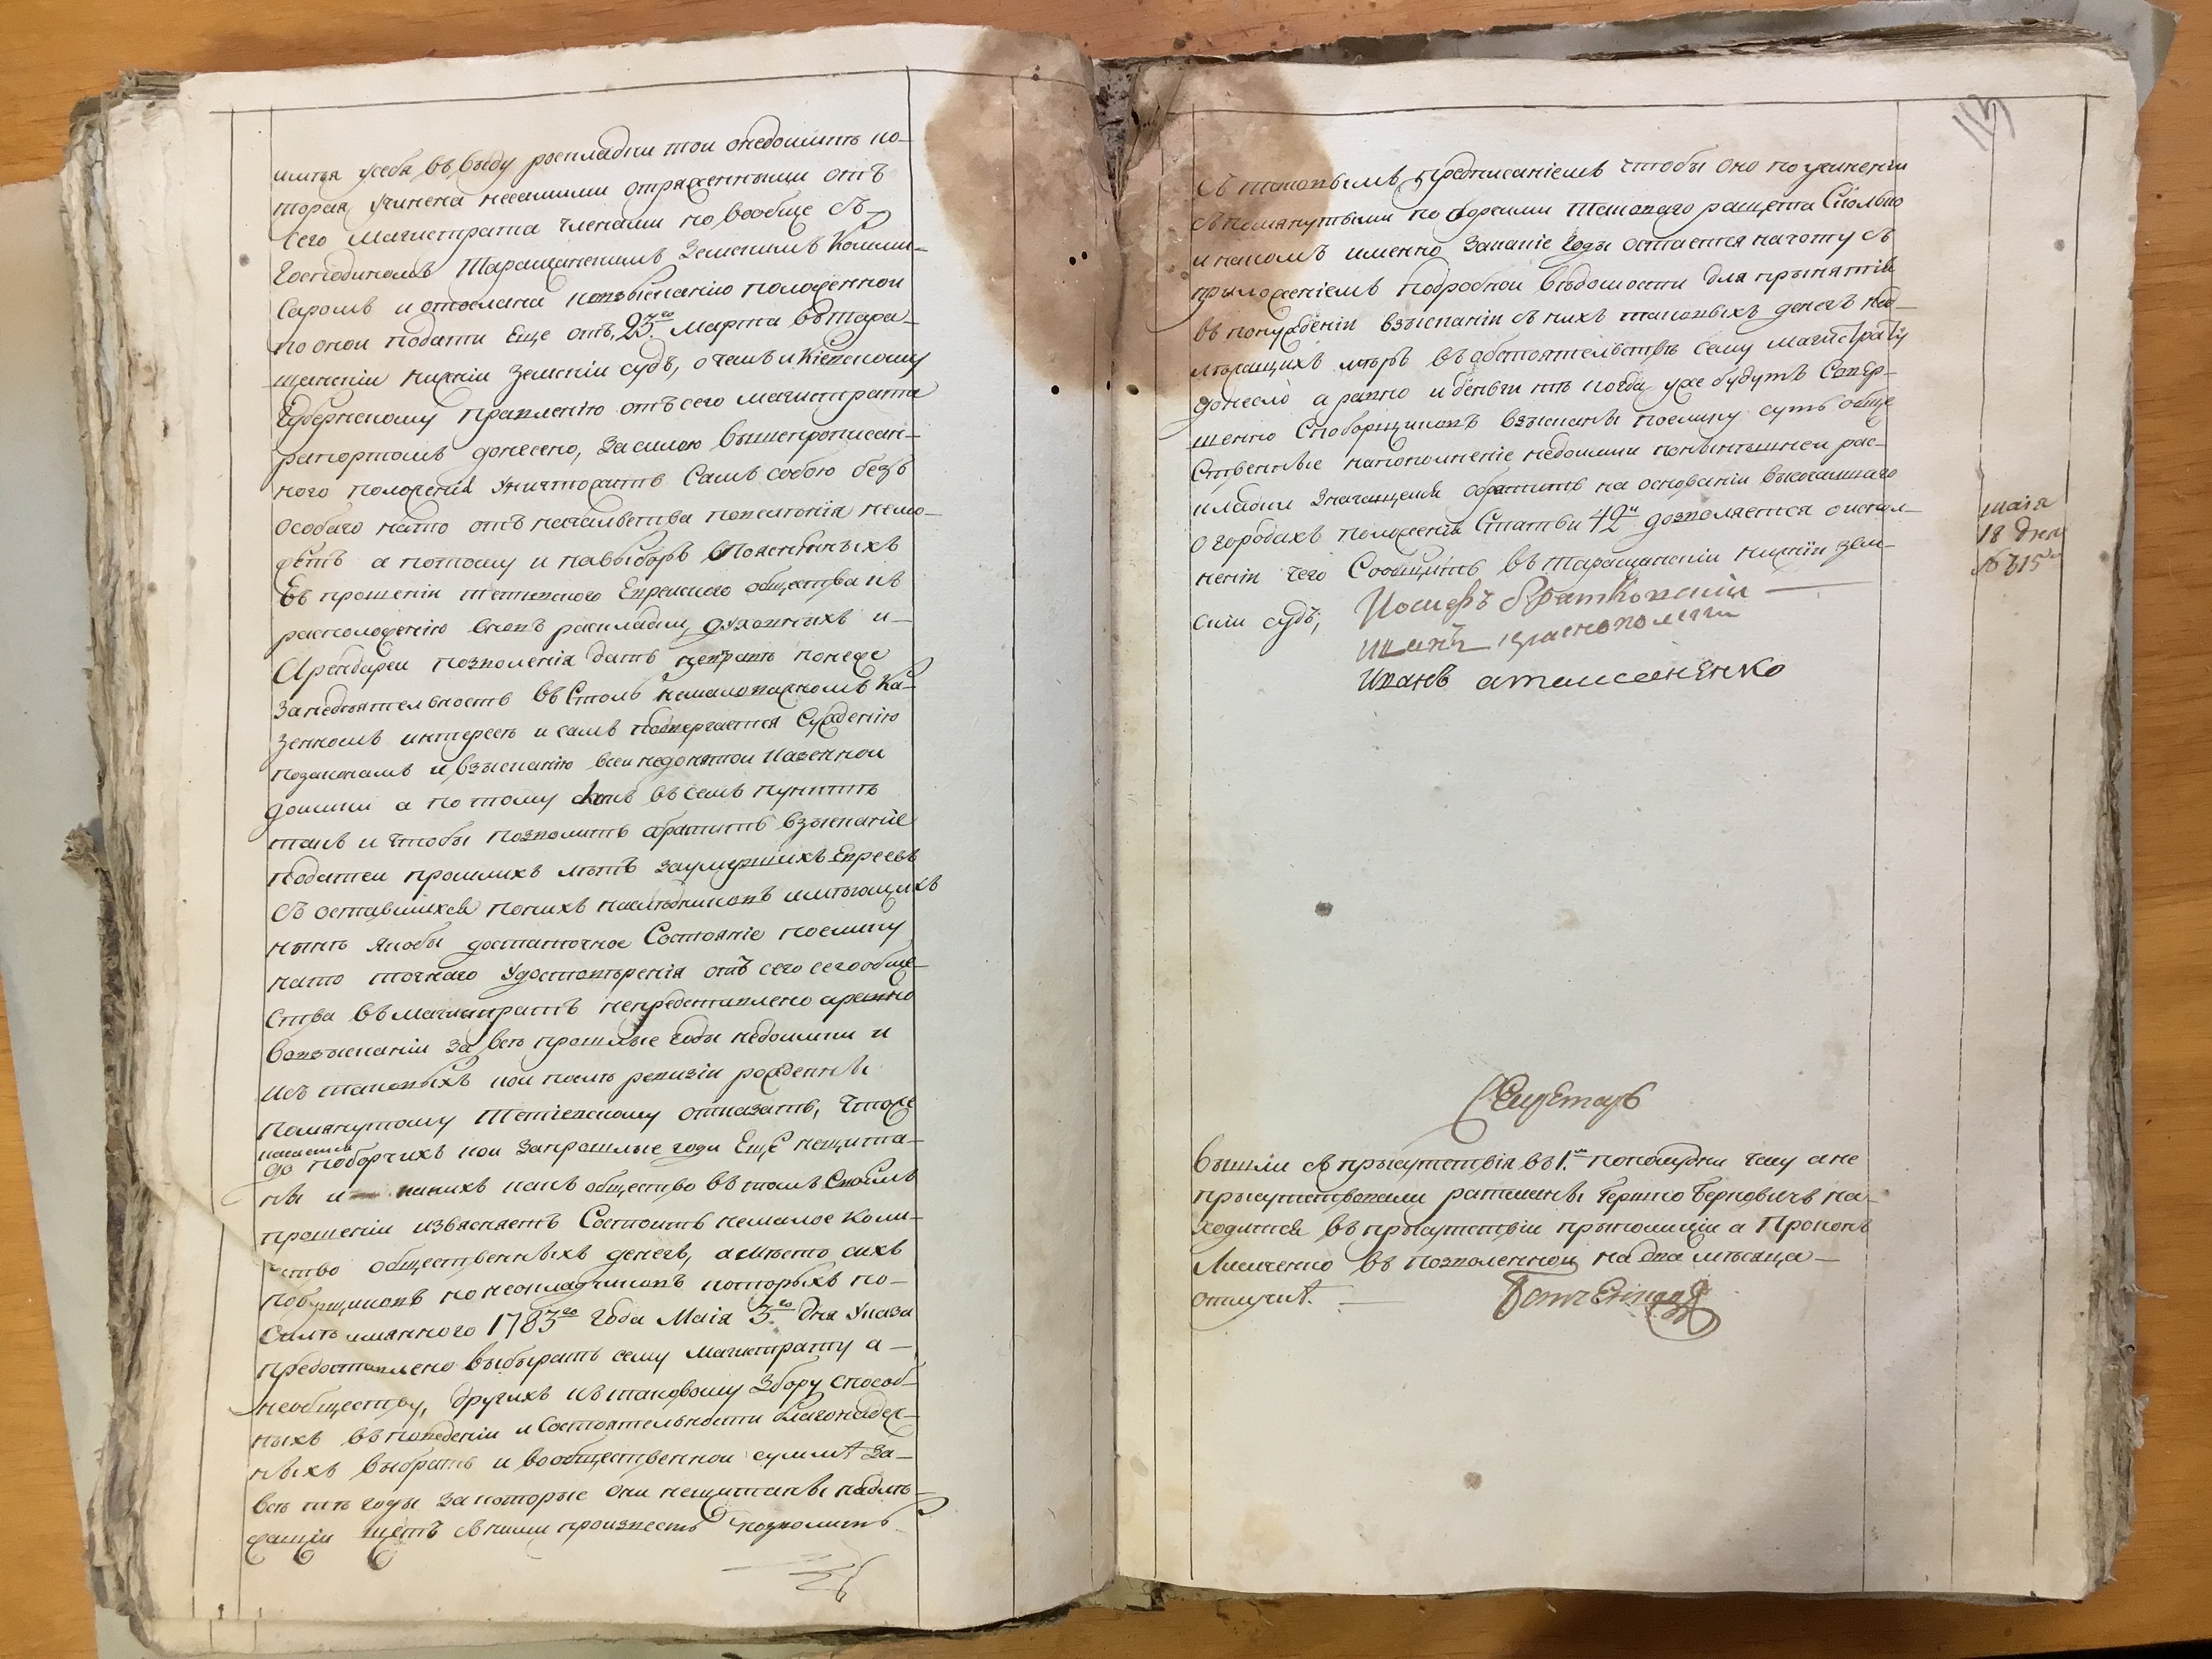 имѣя усебя въ виду роскладки тои онедоимкѣ ко-
торая учинена несамими отряженными отъ
сего магистрата членами но вообще съ
Господиномъ Таращанскимъ Земскимъ Комми-
саромъ и отослана ковзысканію положенной
по оной подати еще отъ 23го Марта вътара-
щанскій нижній земскій судъ, о чемъ и Кіевскому
Губернскому правленію отъ сего магистрата
рапортомъ донесено, засилою вышепрописан-
ного положенія уничтожать самъ собою безъ
особаго нато отъ начальства повеленія немо-
жетъ а потому и навыборъ
въ прошеніи тетиевского Еврейского общества къ
расположенію вновъ раскладки, духовныхъ и
Арендарей позволенія дать неправъ понеже
занедѣятельность въ столь немаловажномъ Ка-
зенномъ интересѣ и самъ подвергается Сужденію
позаконамъ и взысканію всей недонятой казенной
доимки а по тому какъ въ семъ пунктѣ
такъ и чтобы позволить обратить взысканіе
податей прошлихъ лѣтъ заумершихъ Евреевъ
съ оставшихся понихъ наслѣдниковъ имѣющихъ
нынѣ якобы достаточное Состояніе поелику
нато точнаго удостовѣренія отъ сего обще-
ства въ магистратъ непредставлено аравно
вовзысканіи за всѣ прошлые годы недоимки и
изъ таковыхъ кои послѣ ревизіи рожденны
помянутому Тетіевскому отказать, Чтоже
касается
до поборчихъ кои запрошлые годы Еще нещита-
ны и наникъ какъ общество въ томъ Своемъ
прошеніи изъясняетъ Состоитъ немалое коли-
чество общественныхъ денегъ, авмѣсто сихъ
поборщиковъ по неокладчиковъ которыхъ по-
силѣ имяннаго 1783го года Маія 3го дня Указа
предоставлено выбырать сему магистрату а
необществу, другихъ къ таковому Збору способ-
ныхъ въ поведеніи и Состоятельности благонадеж-
ныхъ выбрать и вообщественной суммѣ за-
всѣ тѣ годы за которые они нещитаны надлѣ-
жащій щетъ съ ними произвесть позволить
113
съ таковымъ предписаніемъ чтобы оно по учиненіи
съ помянутыми поборсими таковаго ращета Сколько
и накомъ именно закакіе годы остается начоту съ
приложеніемъ подробной вѣдомости для принятія
въ понужденіи взысканіи съ нихъ таковыхъ денегъ над-
лѣжащихъ мѣръ въ обстоятельствѣ сему магистрату
донесло а равно и деньги тѣ когда уже будутъ Совер-
шенно споборщиковъ взысканы поелику суть обще
ственные напополненіе недоимки понынѣшней рас-
кладки значащейся обратить на основаніи высочайшаго
о городахъ положенія Статьи 42й дозволяется о испол-
неніи чего Сообщить въ таращанскій нижній зем-
скій судъ,
маія
18 дня
№ 315
Иосифъ Братковскій
Иванъ Краснополскій
Иванъ атамасененко
Секретарь
вышли съ присутствія въ 1м пополудни часу ане
присутствовали ратманы Гершко Берковичъ на-
ходится въ присутствіи приполиціи а Прокопъ
Лисиченко въ позволенной на два мѣсяца
отлучкѣ.